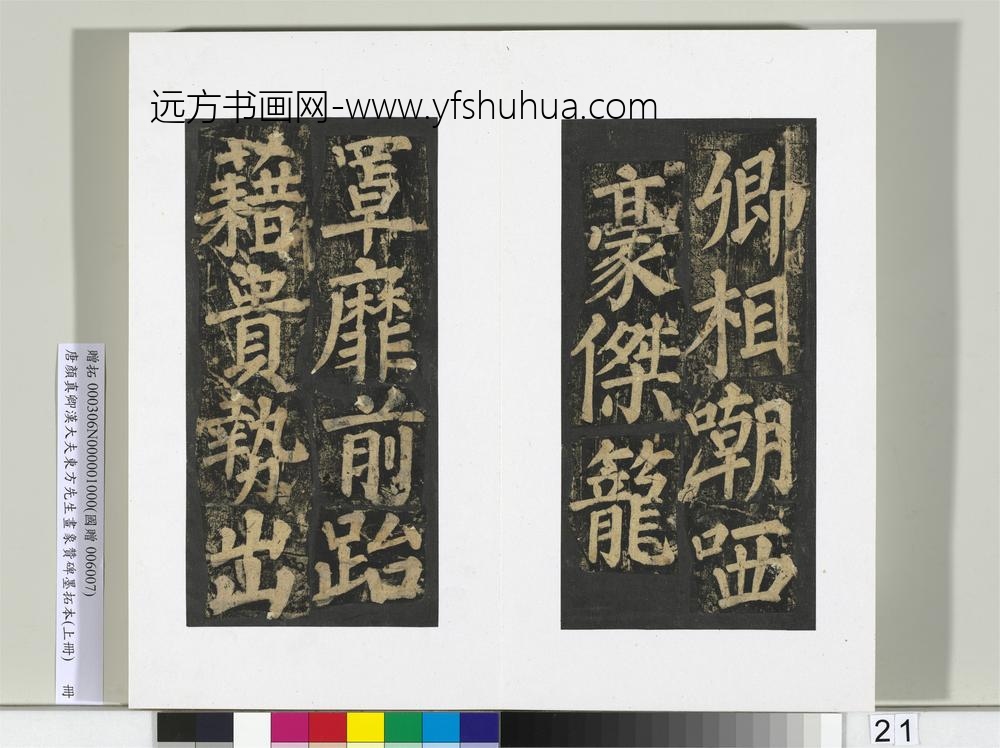 远方书画网-www.yfshuhua.com
卿相嘲哂
豪傑籠
罩靡前跆
藉貴勢出
贈拓 000306N000001000(國贈 006007)
唐顏真卿漢大夫東方先生畫象贊碑墨拓本(上冊) 冊
21